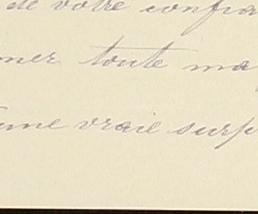 de votre confia
mer toute ma
une vraie surp